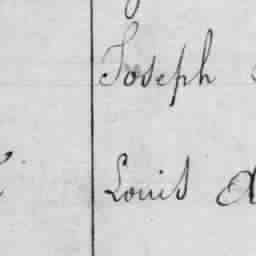 Joseph
Louis